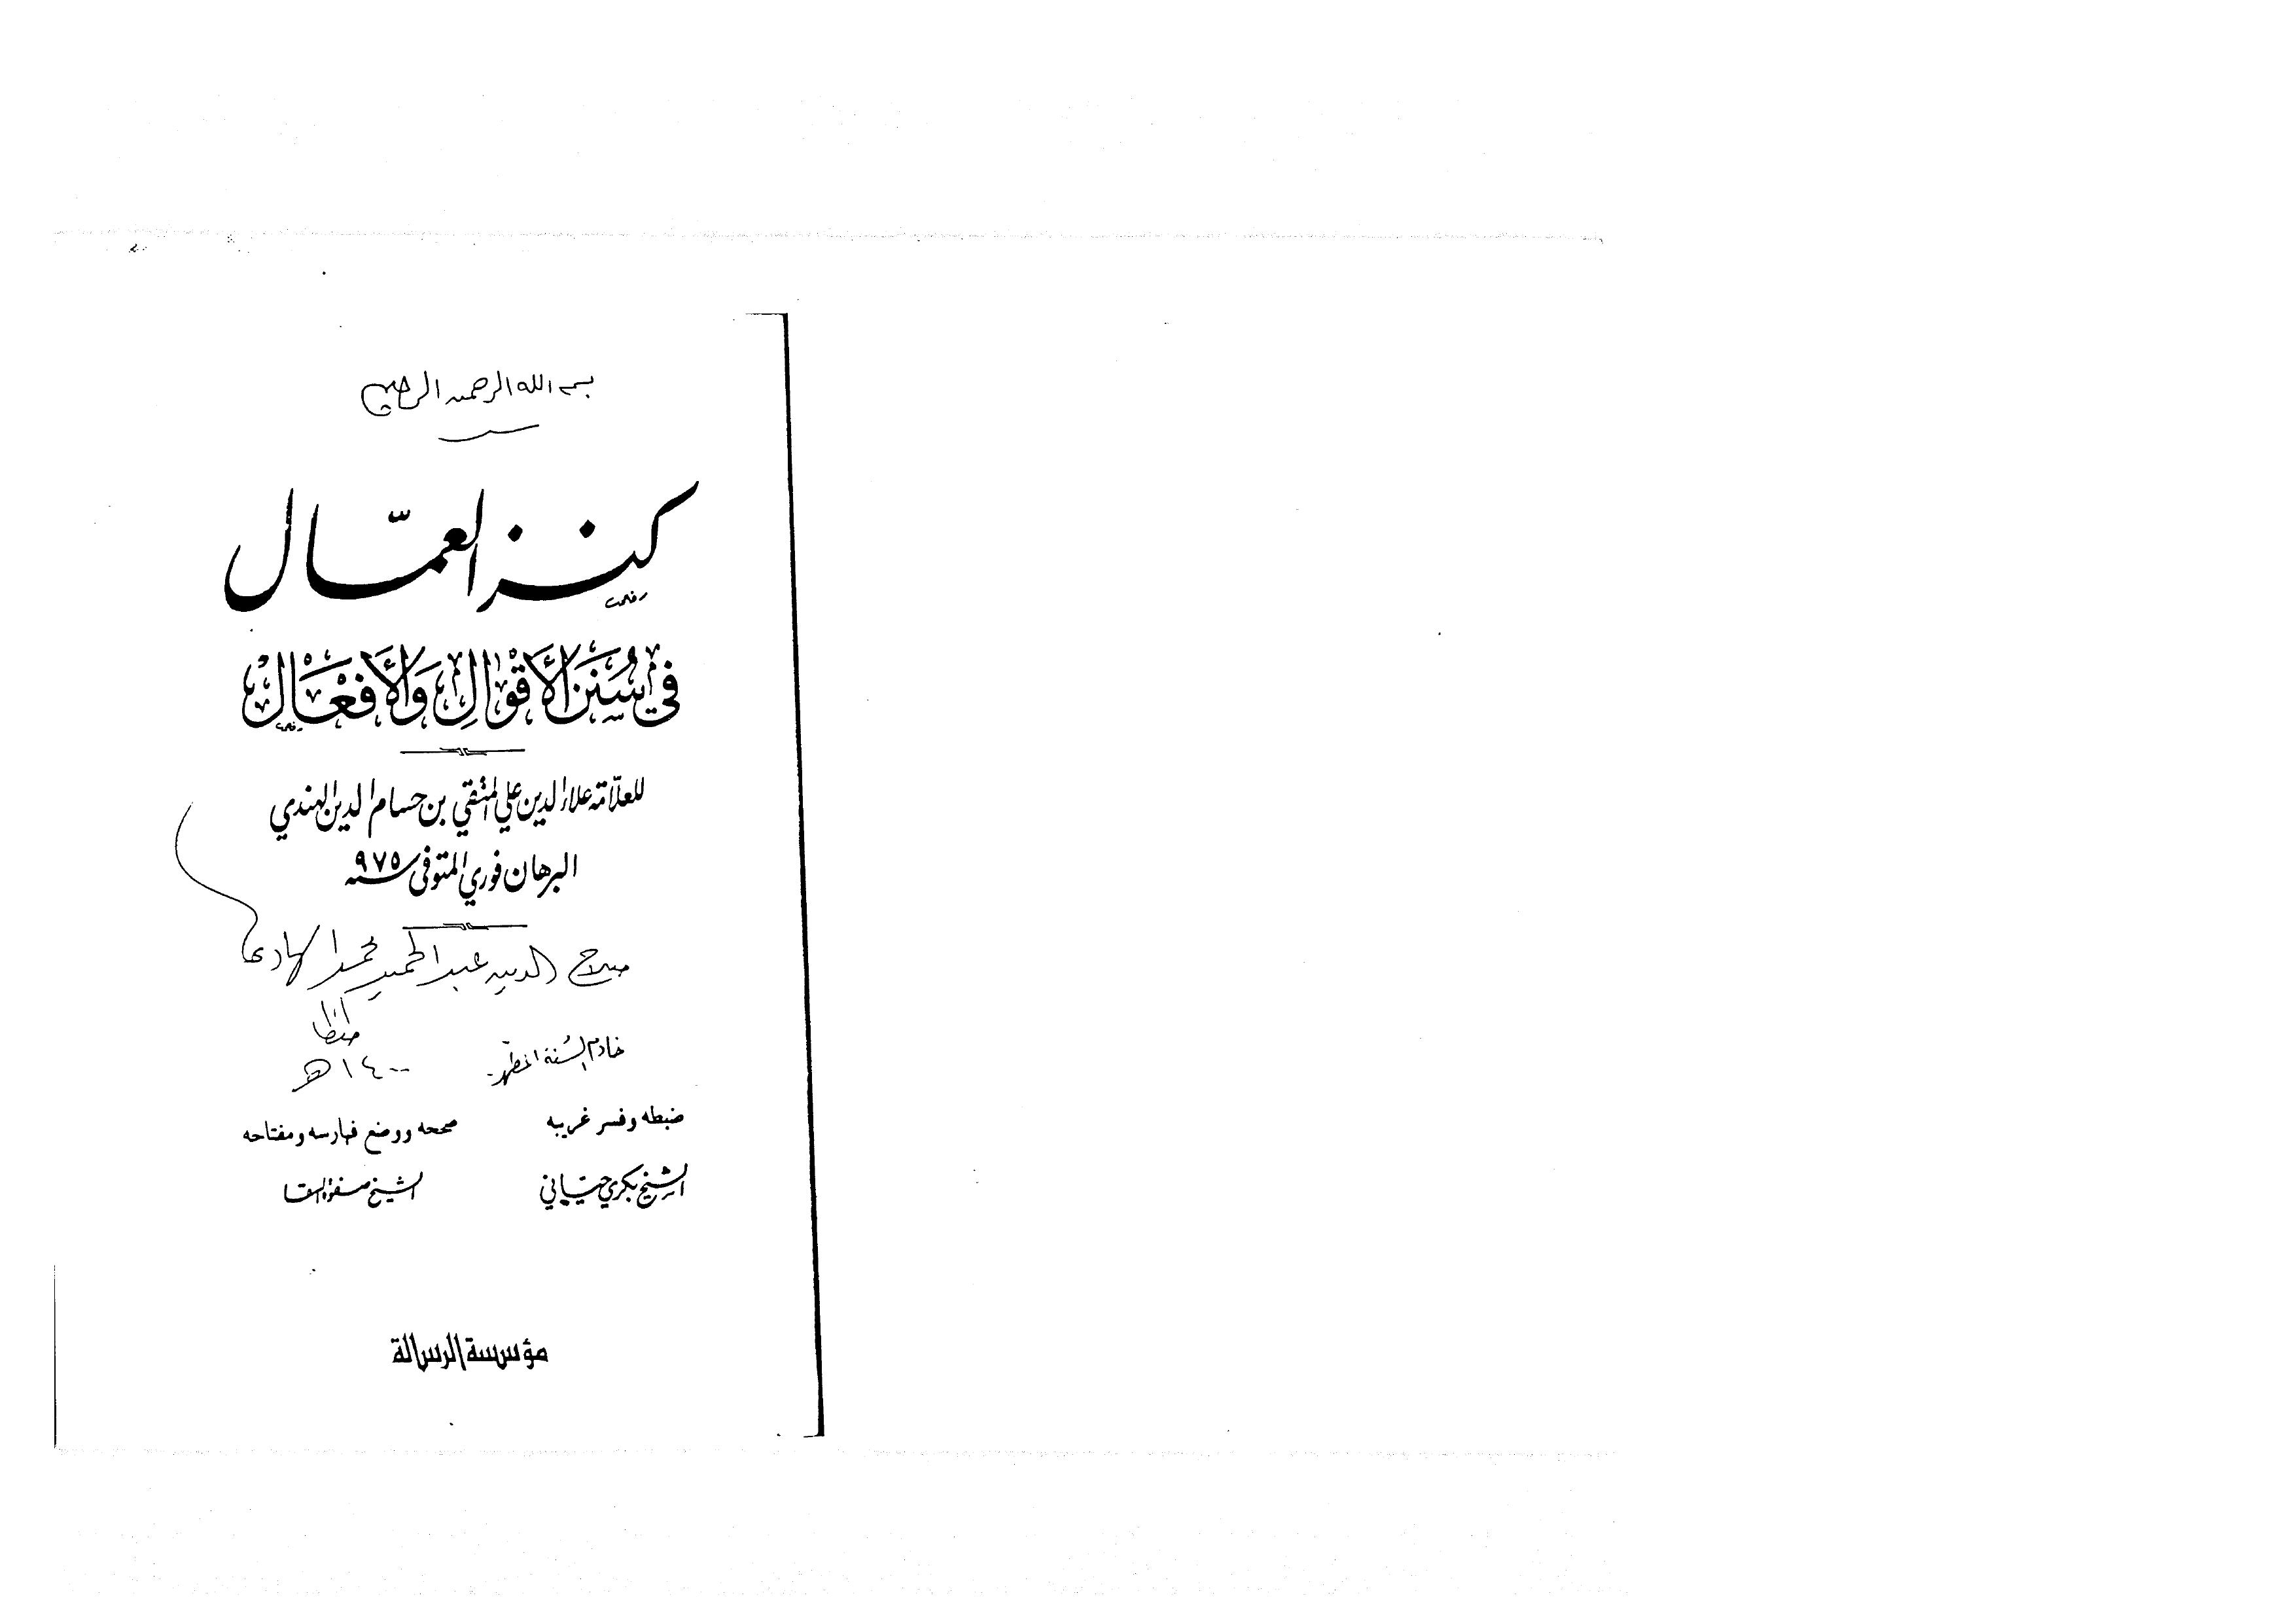 بسم الله الرحمن الرحيم
كنز العمّال
في سُنَنِ الأَقْوالِ وَالأَفْعَال
للعلّامة علاء الدين علي المتقي بن حسام الدين الهندي
البرهان فوري المتوفى سنة ٩٧٥
صلاح الدين عبد الحميد محمد الهادي
طنطا
خادم السُنة المطهرة
١٤٠٠ هـ
ضبطه وفسر غريبه
صححه ووضع فهارسه ومفتاحه
الشيخ بكري حيّاني
الشيخ صفوة السقا
مؤسسة الرسالة